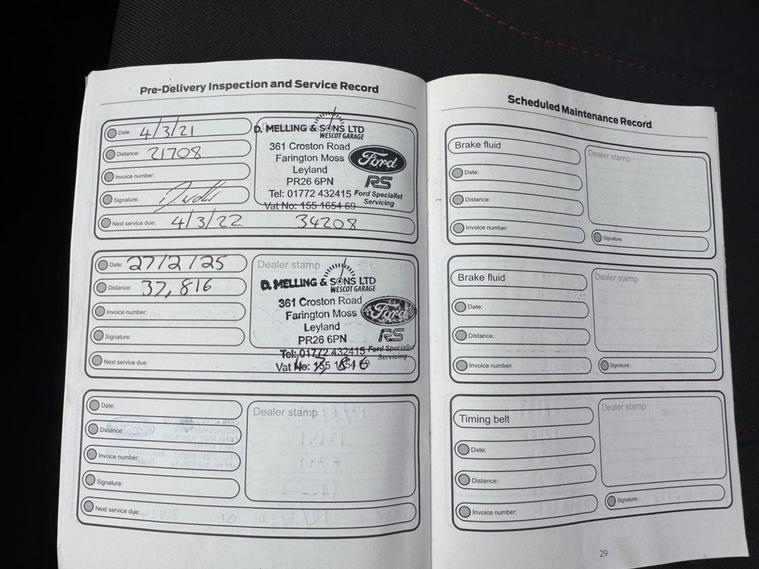 Pre-Delivery Inspection and Service Record
Date: 4/3/21
Distance: 21708
Invoice number:
Signature:
Next service due: 4/3/22 34208
D. MELLING & SONS LTD
WESCOT GARAGE
361 Croston Road
Farington Moss
Leyland
PR26 6PN
Tel: 01772 432415
Vat No: 155 1654 69
Ford
RS
Ford Specialist
Servicing
Date: 27/2/25
Distance: 37,816
Invoice number:
Signature:
Next service due:
Dealer stamp
D. MELLING & SONS LTD
WESCOT GARAGE
361 Croston Road
Farington Moss
Leyland
PR26 6PN
Tel: 01772 432415
Vat No: 155 1654
Ford
RS
Ford Specialist
Servicing
Date:
Distance:
Invoice number:
Signature:
Next service due:
Dealer stamp
Scheduled Maintenance Record
Brake fluid
Date:
Distance:
Invoice number:
Dealer stamp
Signature:
Brake fluid
Date:
Distance:
Invoice number:
Dealer stamp
Signature:
Timing belt
Date:
Distance:
Invoice number:
Dealer stamp
Signature:
29